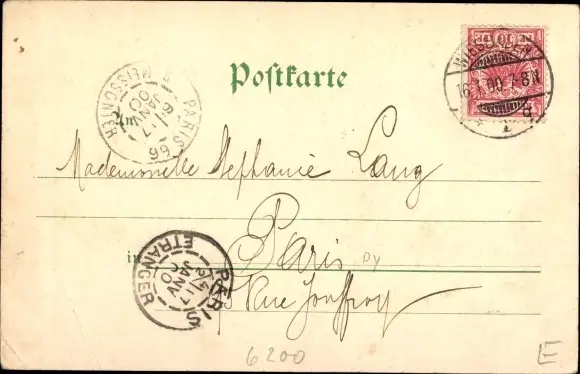 Postkarte
WIESBADEN
16.1.00.7-8N
PARIS 66
R. MEISSONIER
6 17
JANV
00
Mademoiselle Stephanie Lang
in Paris
Rue Jouffroy
PARIS
ETRANGER
17
JANV
00
6200
E